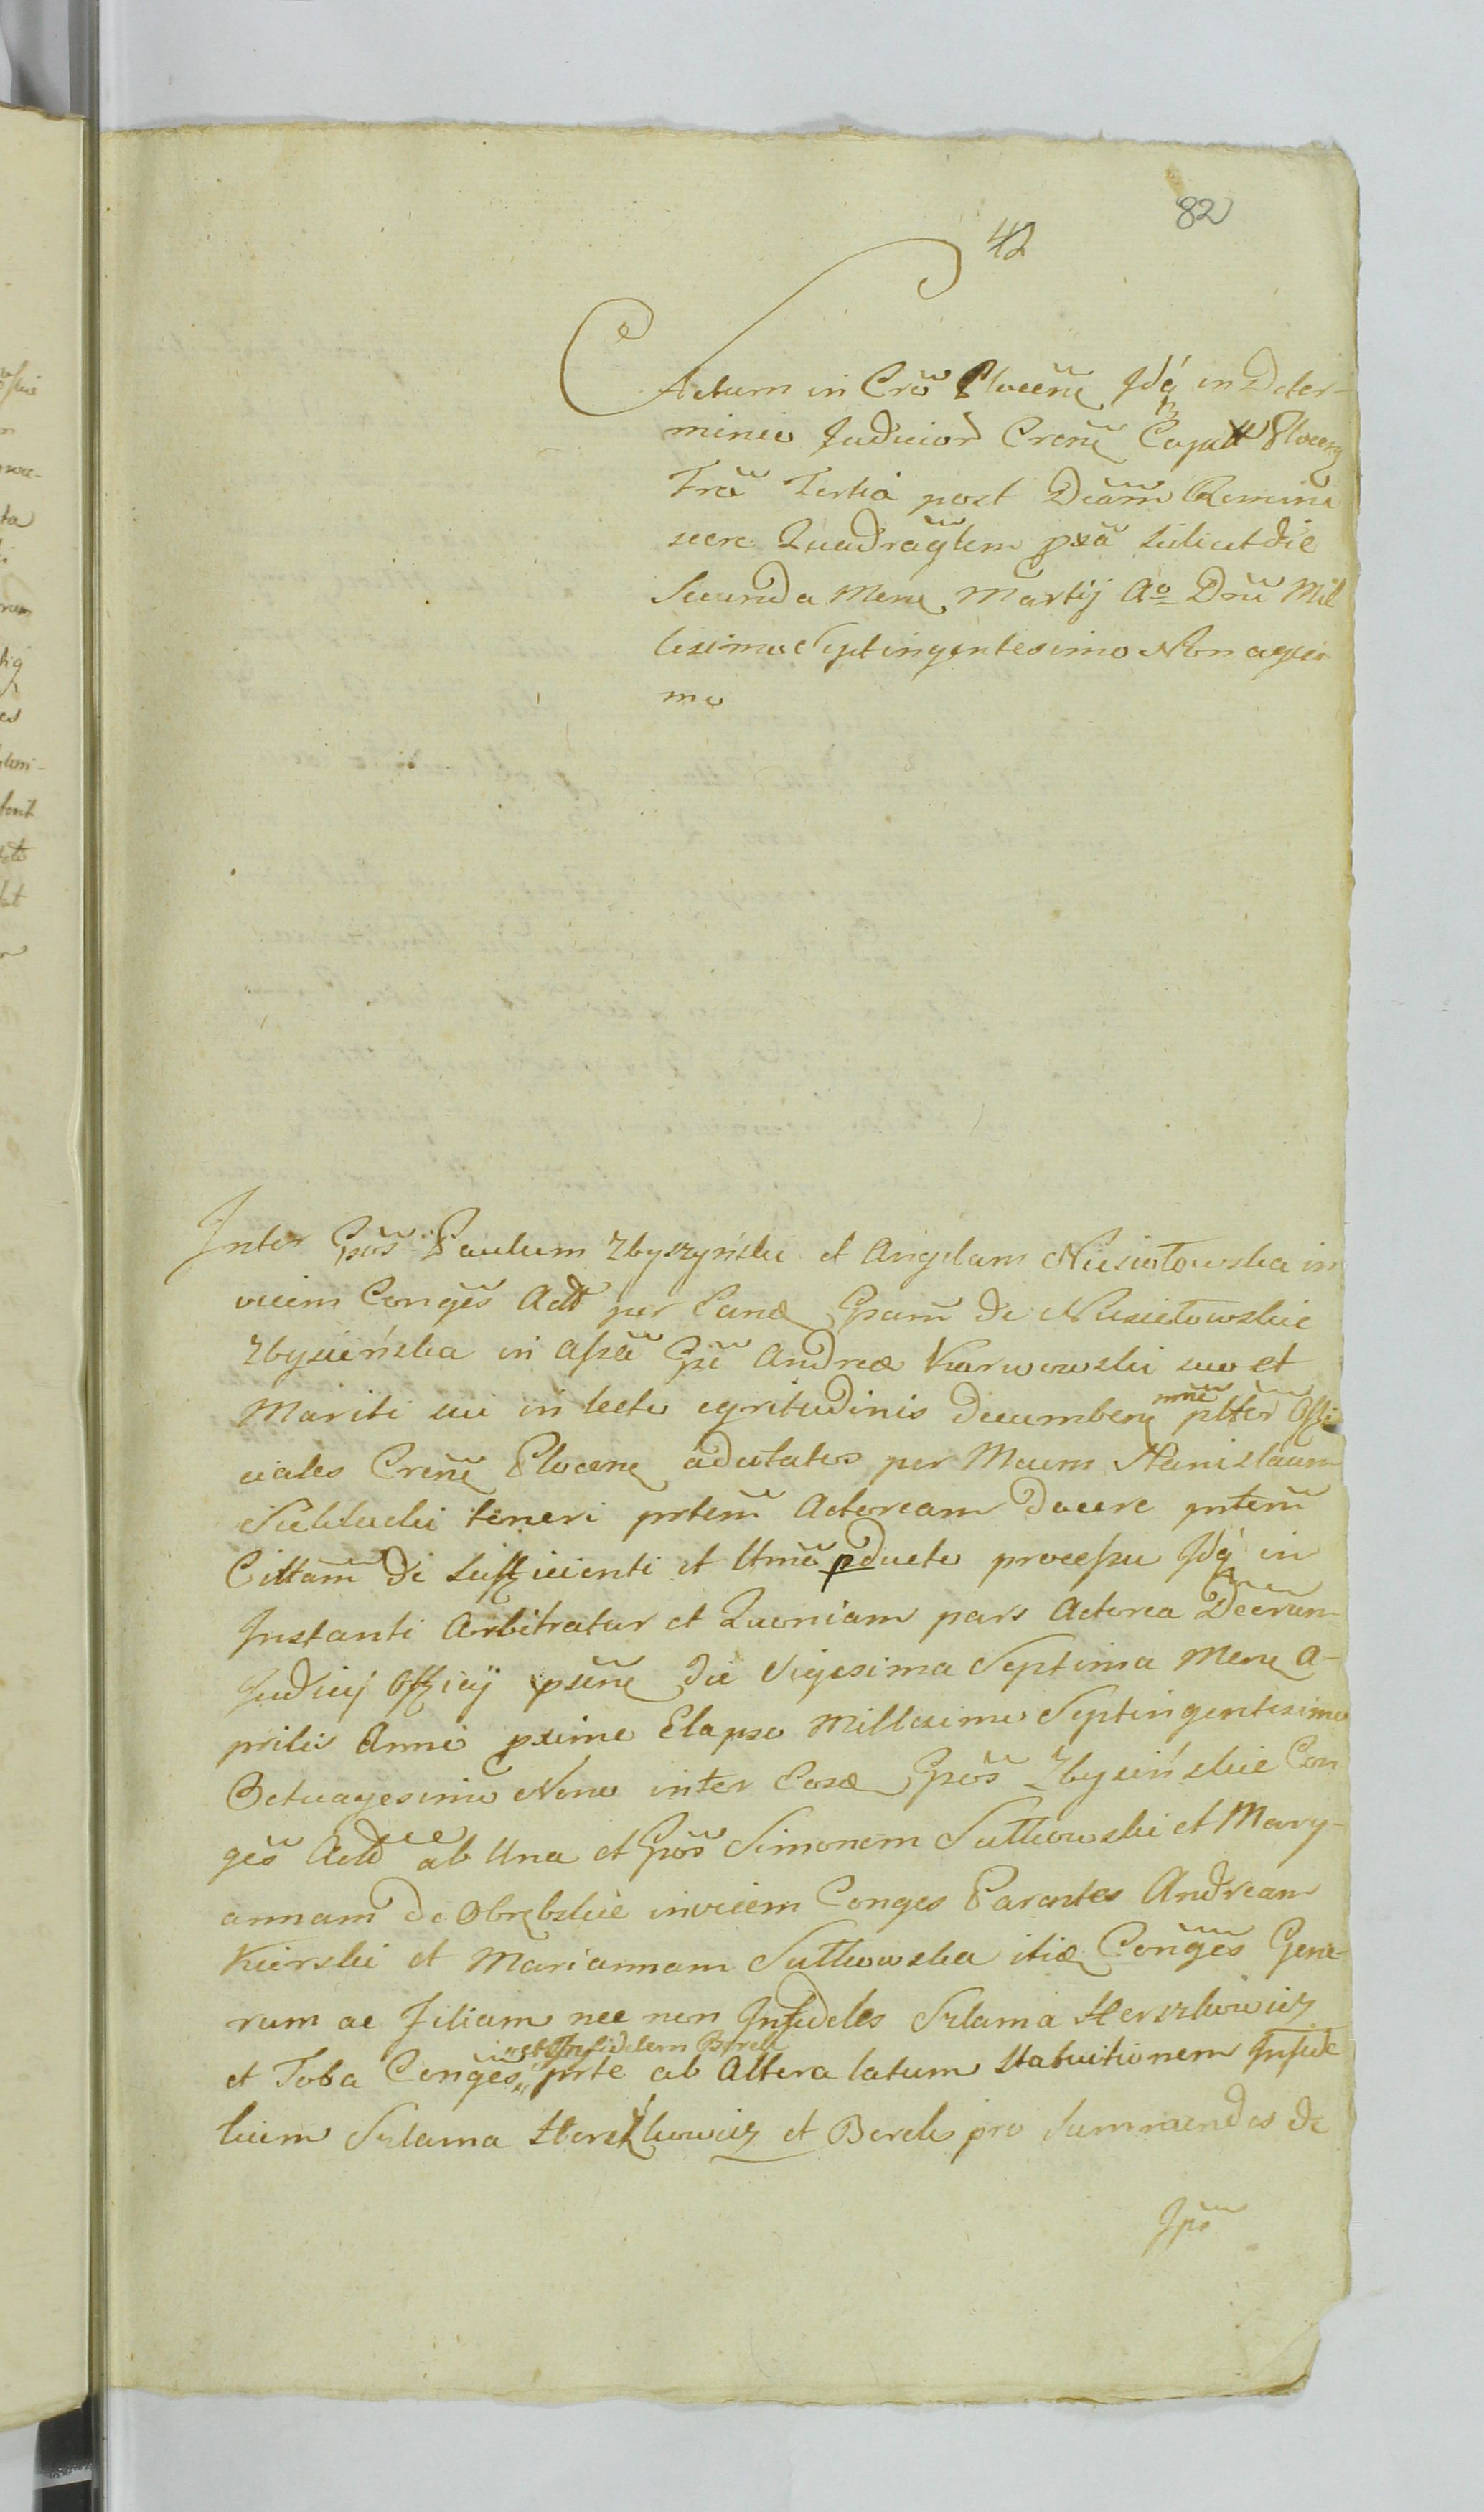 82
42
Actum in Crõ Plocen Idq in Deter-
minio Judicior Cren Capit Plocen
Fra Tertia post Dcam Reminis
cere Quadraglem pxa scilicet die
Secunda Mens Martij Ao Dni Mil
lesimo Septingentesimo Nonagesi
mo
Inter Gsos Paulum Zbyszyński et Angelam Niesiołowska in
vicem Conges Act per Eand Gsam de Niesiołowskie
Zbysińska in assa Gsi Andreæ Karwowski suo et
Mariti sui in lecto egritudinis decumben nne pltter Offi
ciales Cren Plocen adcitatos per Mcum Stanislaum
teneri prtem Actoream docere prtem
Cittam de sufficienti et ltme pducto processu Idq in
Instanti Arbitratur et Quoniam pars Actorea Decrum
Judicij Officij psen die Vigesima Septima Mens A-
prilis Anni pxime Elapso Millesimo Septingentesimo
Octuagesimo Nono inter Eosd Gsos Zbysińskie Con
ges Act ab Una et Gsos Simonem Sutkowski et Mary-
annam de Obrębskie invicem Conges Parentes Andream
Kierski et Mariannam Sutkowska itid Conges Gene-
rum ac Filiam nec non Infideles Szlama Herszkowicz
et Infidelem Berek
et Toba Conges prte ab Altera latum Statuitionem Infide
lium Szlama Herszkowicz et Berek pro summendis de
Ips